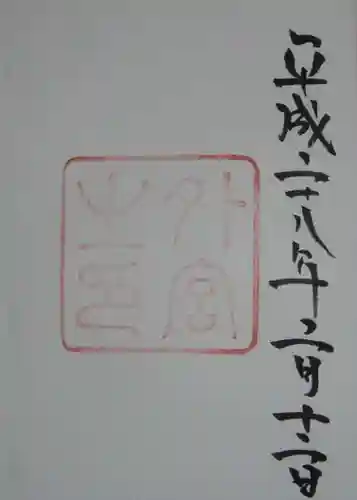 平成二十八年二月十二日
外宮之印